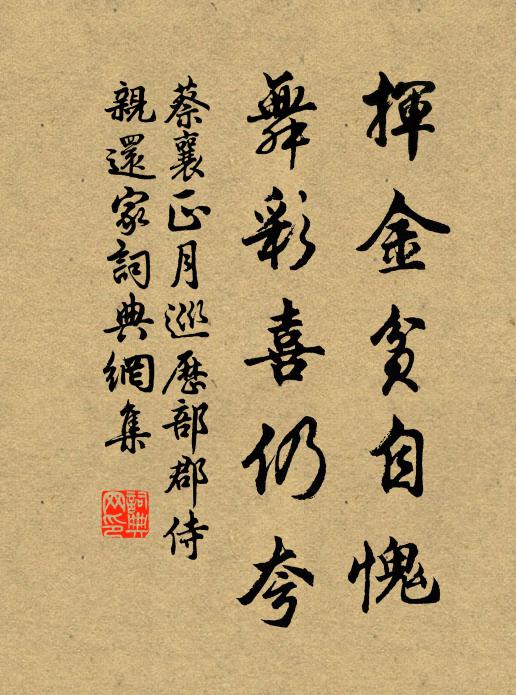 揮金貧自愧
舞彩喜仍夸
蔡襄正月巡歷部郡侍
親還家詞典網集
詞典網印